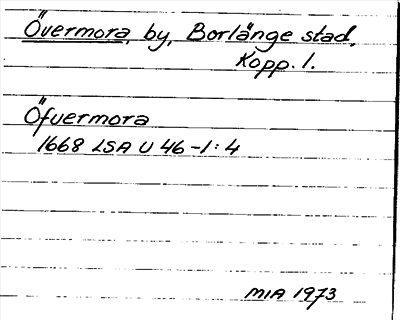 Övermora, by, Borlänge stad,
Kopp. l.
Öfvermora
1668 LSA U 46-1:4
MIA 1973